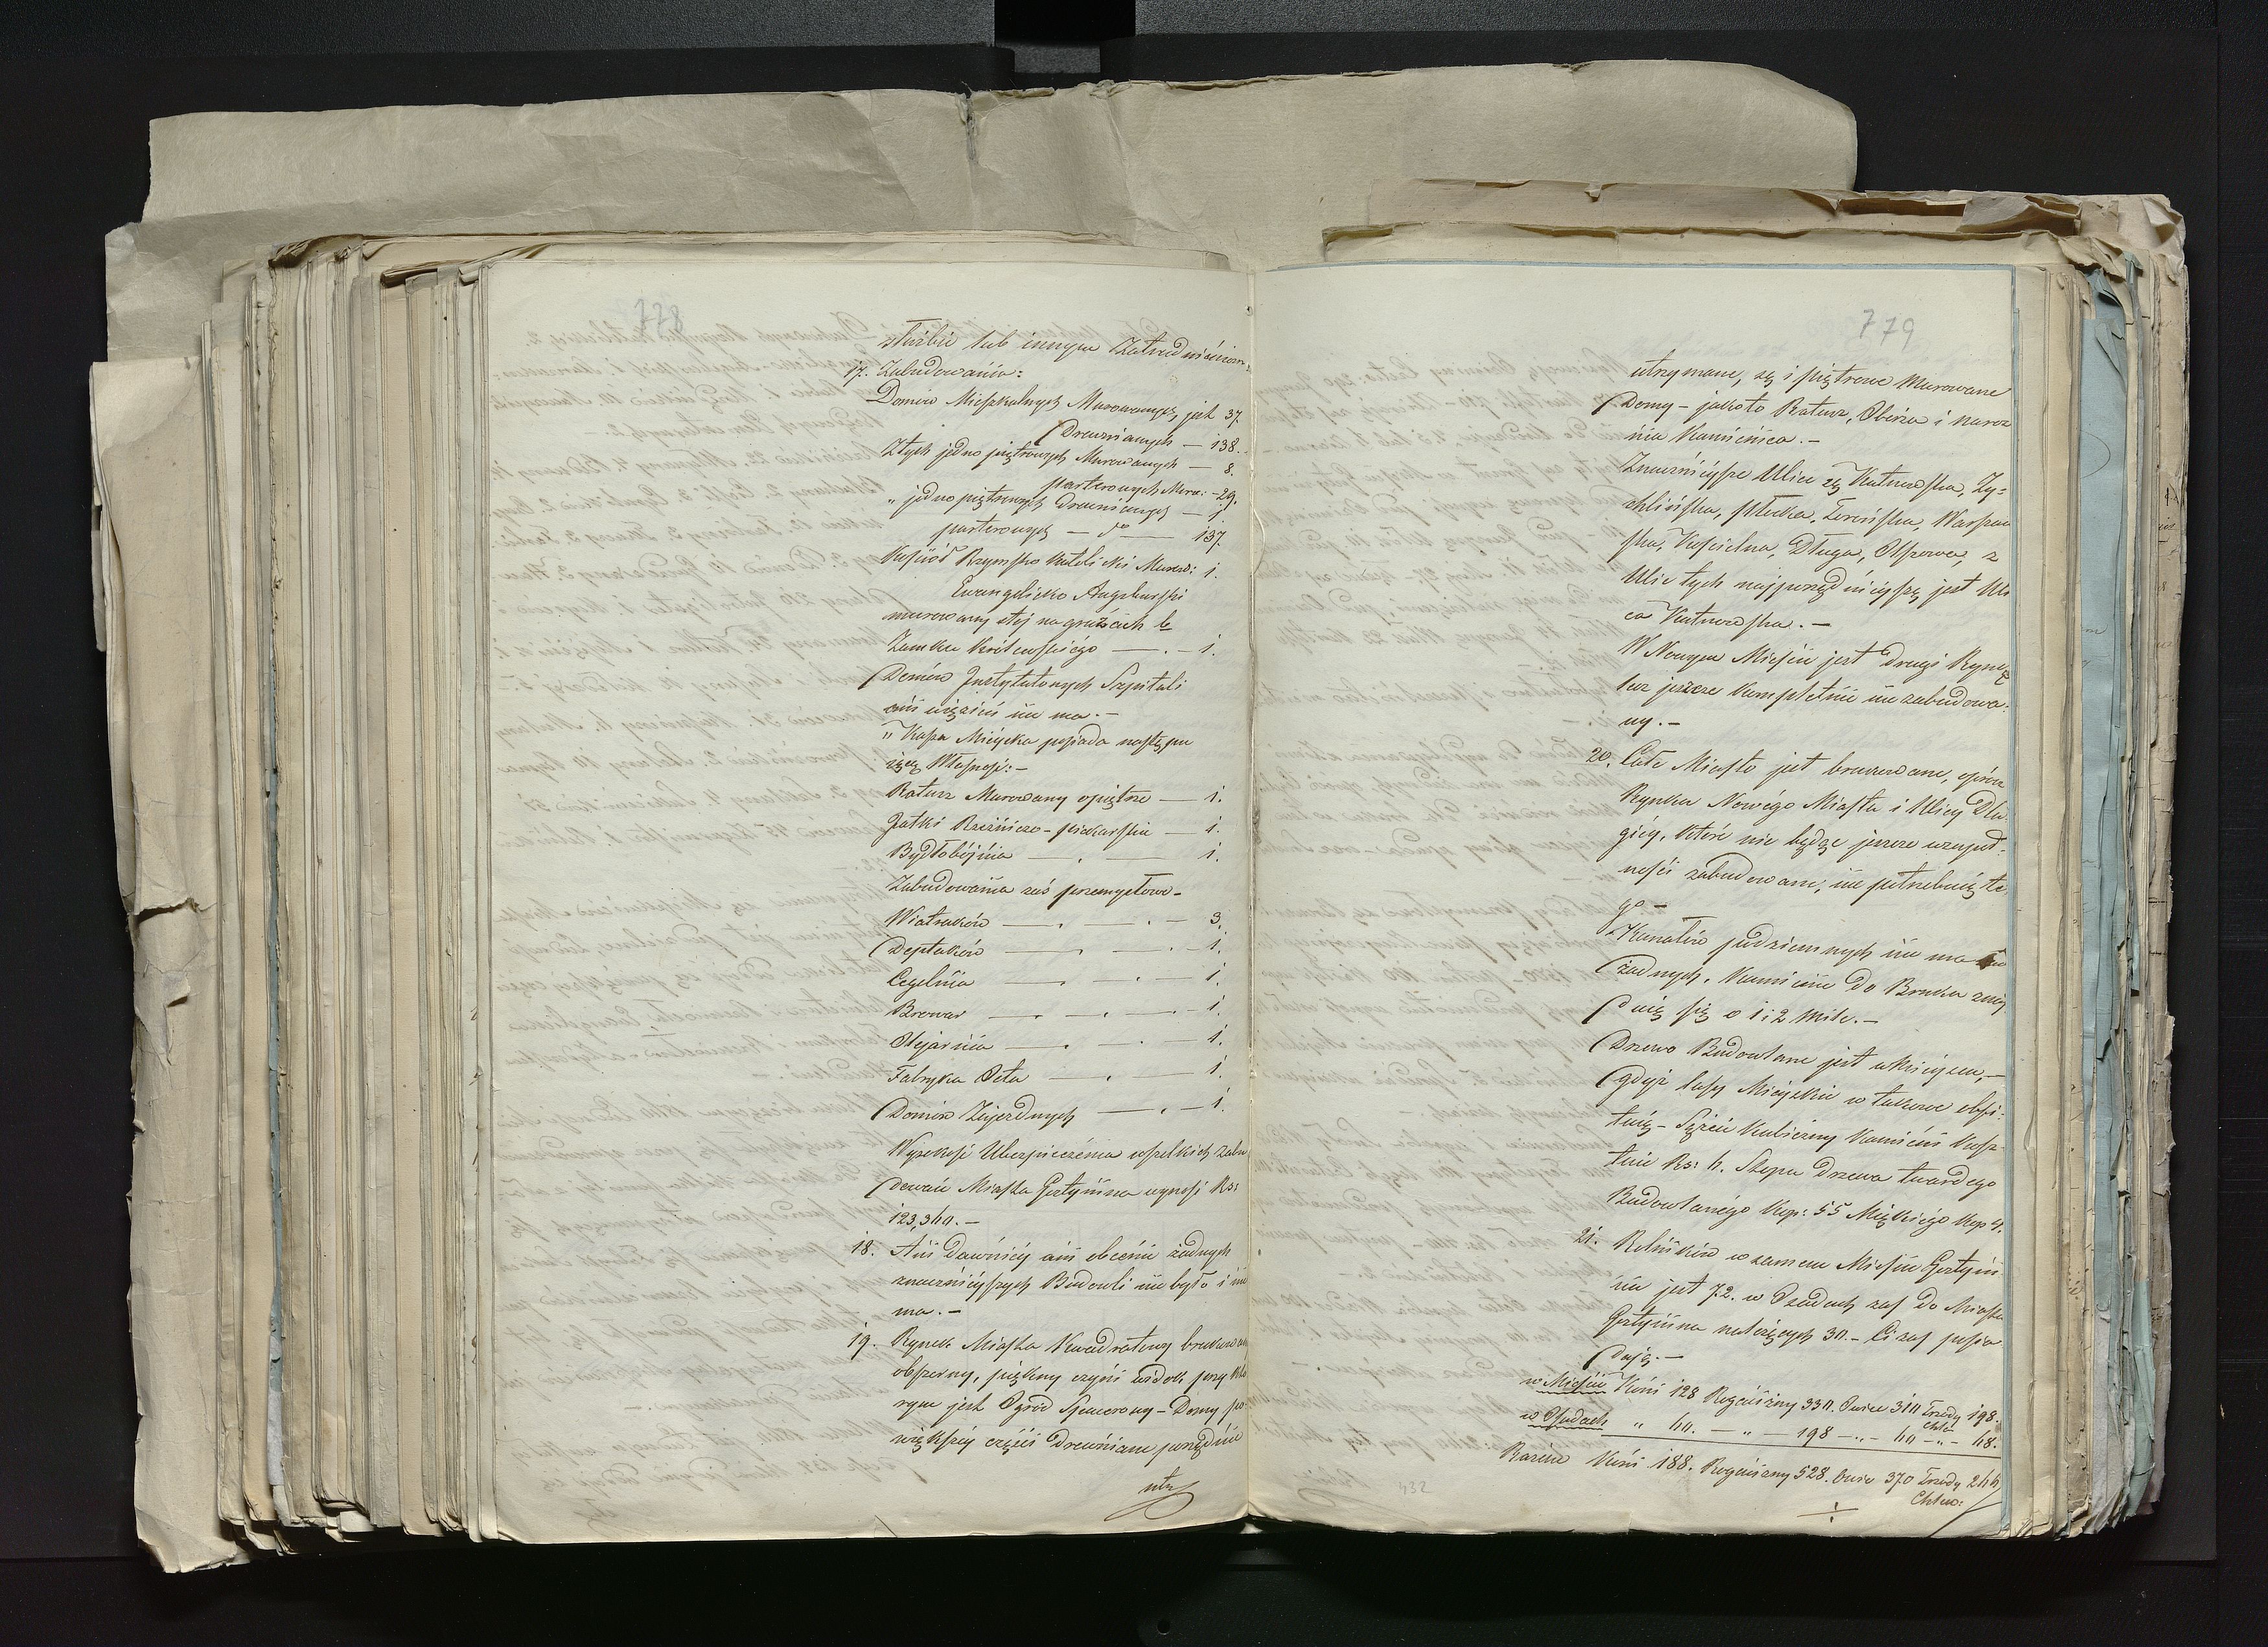 778
służbie lub innym zatrudnieniom.
17. Zabudowania:
Domów Mieszkalnych Murowanych jest 37.
Drewnianych — 138.
Z tych jedno piętrowych Murowanych — 8.
parterowych Muro: - 29.
" jedno piętrowych Drewnianych — 1
parterowych — do — 137.
Kościoł Rzymsko Katolicki Murow: 1.
Ewangelicko Augsburski
murowany stoj na gruzach b.
Zamku Królewskiego — . — 1.
Domów Instytutowych Szpitali
ani więzień nie ma. —
" Kassa Mieyska posiada następu
iącą Własność: —
Ratusz Murowany o piętrze — 1.
Jatki Rzeźniczo-piekarskie — 1.
Bydłobójnia — . — 1.
Zabudowania zaś przemysłowe —
Wiatraków — . — . — 3.
Deptaków — . — . — 1.
Cegelnia — . — 1.
Browar — . — . — 1.
Olejarnia — . — . — 1.
Fabryka Octu — . — 1.
Domów Zajezdnych — . — 1.
Wysokość Ubezpieczenia wszelkich zabu
dowań Miasta Gostynina wynosi Rs:
123,340. —
18. Ani dawniéy ani obecnie żadnych
znaczniéyszych Budowli nie było i nie
ma. —
19. Rynek Miasta Kwadratowy brukowany
obszerny, piękny czyni widok przy któ
rym jest Ogród Spacerowy — Domy po
większéy części drewniane porządnie
utrz
779
utrzymane, są i piętrowe Murowane
Domy — jakoto Ratusz, Oberża i naroż
nia Kamienica. —
Znaczniéysze Ulice są Kutnowska, Zy=
chlińska, płocka, Warszaw
ska, Kościelna, Długa, Olszowa, z
Ulic tych najporządniéyszą jest Uli
ca Kutnowska. —
W Nowym Mieście jest drugi Rynek
lecz jeszcze kompletnie nie zabudowa:
ny. —
20. Całe Miasto jest brukowane, oprócz
Rynku Nowego Miasta i Ulicy Dłu
giéy, które nie będąc jeszcze w zupeł-
ności zabudowane, nie potrzebuią te
go —
Kanałów podziemnych nie ma
żadnych. Kamienie do Bruku znay
duią się o 1 i 2 Mile. —
Drzewo Budowlane jest w bliskości, —
gdyż lasy Mieyskie w takowe obfi:
tuią — Sążeń kubiczny Kamieni kosz=
tuie Rs: 4. Stopa Drzewa twardego
Budowlanego kop: 55 Miękkiego kop 4.
21. Rolników w samem Mieście Gostyni
nie jest 72. w Osadach zaś do Miasta
Gostynina należących 30. — Ci zaś posia
dają. —
w Mieście Koni 128 Rogacizny 330. Owiec 310 Trzody chle: 198.
w Osadach " 60. — " — 198 — " — 60 — " — 48.
Razem Koni 188. Rogacizny 528. Owiec 370 Trzody Chlew: 246
432